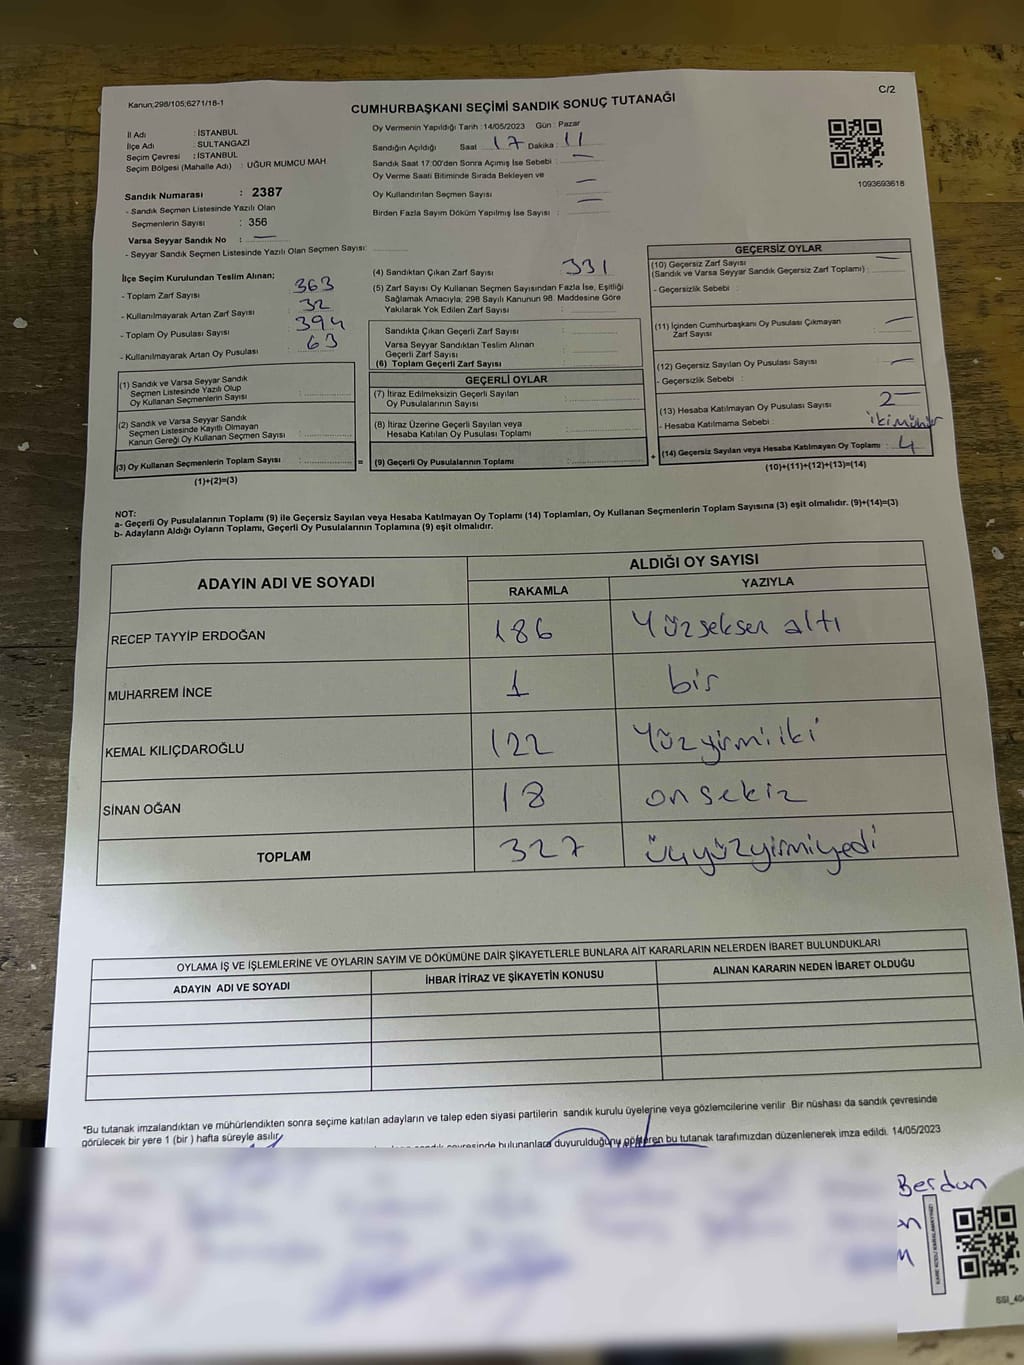 Kanun;298/105;6271/18-1
C/2
CUMHURBAŞKANI SEÇİMİ SANDIK SONUÇ TUTANAĞI
İl Adı : İSTANBUL
İlçe Adı : SULTANGAZİ
Seçim Çevresi : İSTANBUL
Seçim Bölgesi (Mahalle Adı) : UĞUR MUMCU MAH
Sandık Numarası : 2387
- Sandık Seçmen Listesinde Yazılı Olan
Seçmenlerin Sayısı : 356
Varsa Seyyar Sandık No : —
- Seyyar Sandık Seçmen Listesinde Yazılı Olan Seçmen Sayısı:
Oy Vermenin Yapıldığı Tarih : 14/05/2023 Gün : Pazar
Sandığın Açıldığı Saat 17 Dakika : 11
Sandık Saat 17:00'den Sonra Açımış İse Sebebi : —
Oy Verme Saati Bitiminde Sırada Bekleyen ve
Oy Kullandırılan Seçmen Sayısı —
Birden Fazla Sayım Döküm Yapılmış İse Sayısı : —
1093693618
İlçe Seçim Kurulundan Teslim Alınan;
- Toplam Zarf Sayısı : 363
- Kullanılmayarak Artan Zarf Sayısı : 32
- Toplam Oy Pusulası Sayısı : 394
- Kullanılmayarak Artan Oy Pusulası : 63
(1) Sandık ve Varsa Seyyar Sandık
Seçmen Listesinde Yazılı Olup
Oy Kullanan Seçmenlerin Sayısı :
(2) Sandık ve Varsa Seyyar Sandık
Seçmen Listesinde Kayıtlı Olmayan
Kanun Gereği Oy Kullanan Seçmen Sayısı :
(3) Oy Kullanan Seçmenlerin Toplam Sayısı : =
(1)+(2)=(3)
(4) Sandıktan Çıkan Zarf Sayısı 331
(5) Zarf Sayısı Oy Kullanan Seçmen Sayısından Fazla İse, Eşitliği
Sağlamak Amacıyla; 298 Sayılı Kanunun 98. Maddesine Göre
Yakılarak Yok Edilen Zarf Sayısı :
Sandıkta Çıkan Geçerli Zarf Sayısı :
Varsa Seyyar Sandıktan Teslim Alınan
Geçerli Zarf Sayısı :
(6) Toplam Geçerli Zarf Sayısı :
GEÇERLİ OYLAR
(7) İtiraz Edilmeksizin Geçerli Sayılan
Oy Pusulalarının Sayısı :
(8) İtiraz Üzerine Geçerli Sayılan veya
Hesaba Katılan Oy Pusulası Toplamı :
(9) Geçerli Oy Pusulalarının Toplamı : +
GEÇERSİZ OYLAR
(10) Geçersiz Zarf Sayısı —
(Sandık ve Varsa Seyyar Sandık Geçersiz Zarf Toplamı) :
- Geçersizlik Sebebi :
(11) İçinden Cumhurbaşkanı Oy Pusulası Çıkmayan
Zarf Sayısı : —
(12) Geçersiz Sayılan Oy Pusulası Sayısı : —
- Geçersizlik Sebebi :
(13) Hesaba Katılmayan Oy Pusulası Sayısı : 2 —
- Hesaba Katılmama Sebebi : iki mühür
(14) Geçersiz Sayılan veya Hesaba Katılmayan Oy Toplamı : 4
(10)+(11)+(12)+(13)=(14)
NOT:
a- Geçerli Oy Pusulalarının Toplamı (9) ile Geçersiz Sayılan veya Hesaba Katılmayan Oy Toplamı (14) Toplamları, Oy Kullanan Seçmenlerin Toplam Sayısına (3) eşit olmalıdır. (9)+(14)=(3)
b- Adayların Aldığı Oyların Toplamı, Geçerli Oy Pusulalarının Toplamına (9) eşit olmalıdır.
ADAYIN ADI VE SOYADI
ALDIĞI OY SAYISI
RAKAMLA YAZIYLA
RECEP TAYYİP ERDOĞAN 186 Yüzseksen altı
MUHARREM İNCE 1 bir
KEMAL KILIÇDAROĞLU 122 Yüzyirmiiki
SİNAN OĞAN 18 onsekiz
TOPLAM 327 üçyüzyirmiyedi
OYLAMA İŞ VE İŞLEMLERİNE VE OYLARIN SAYIM VE DÖKÜMÜNE DAİR ŞİKAYETLERLE BUNLARA AİT KARARLARIN NELERDEN İBARET BULUNDUKLARI
ADAYIN ADI VE SOYADI İHBAR İTİRAZ VE ŞİKAYETİN KONUSU ALINAN KARARIN NEDEN İBARET OLDUĞU
*Bu tutanak imzalandıktan ve mühürlendikten sonra seçime katılan adayların ve talep eden siyasi partilerin sandık kurulu üyelerine veya gözlemcilerine verilir. Bir nüshası da sandık çevresinde
görülecek bir yere 1 (bir ) hafta süreyle asılır.
sandık çevresinde bulunanlara duyurulduğunu gösteren bu tutanak tarafımızdan düzenlenerek imza edildi. 14/05/2023
Berdan